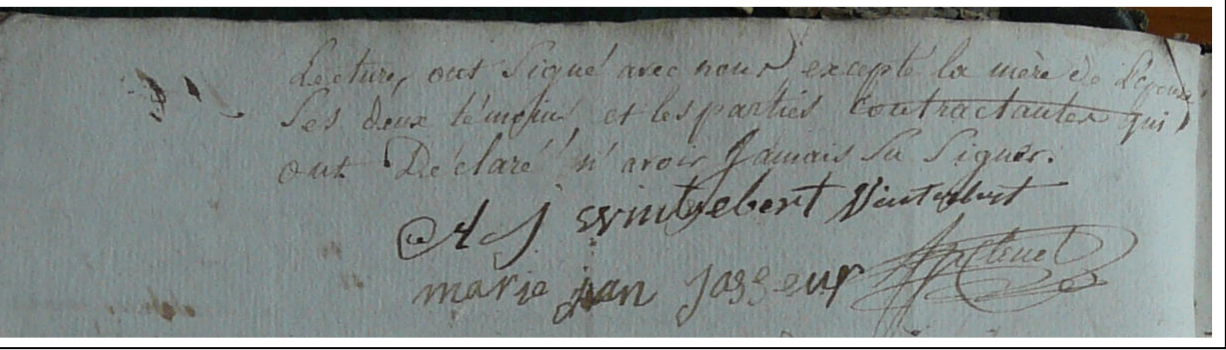 Lecture, ont Signé avec nous excepté la mère de L'épouse
Ses deux témoins et les parties contractantes qui
ont Déclaré n'avoir Jamais Su Signer.
A J wintrebert Vintrebert
marie jean Josseur